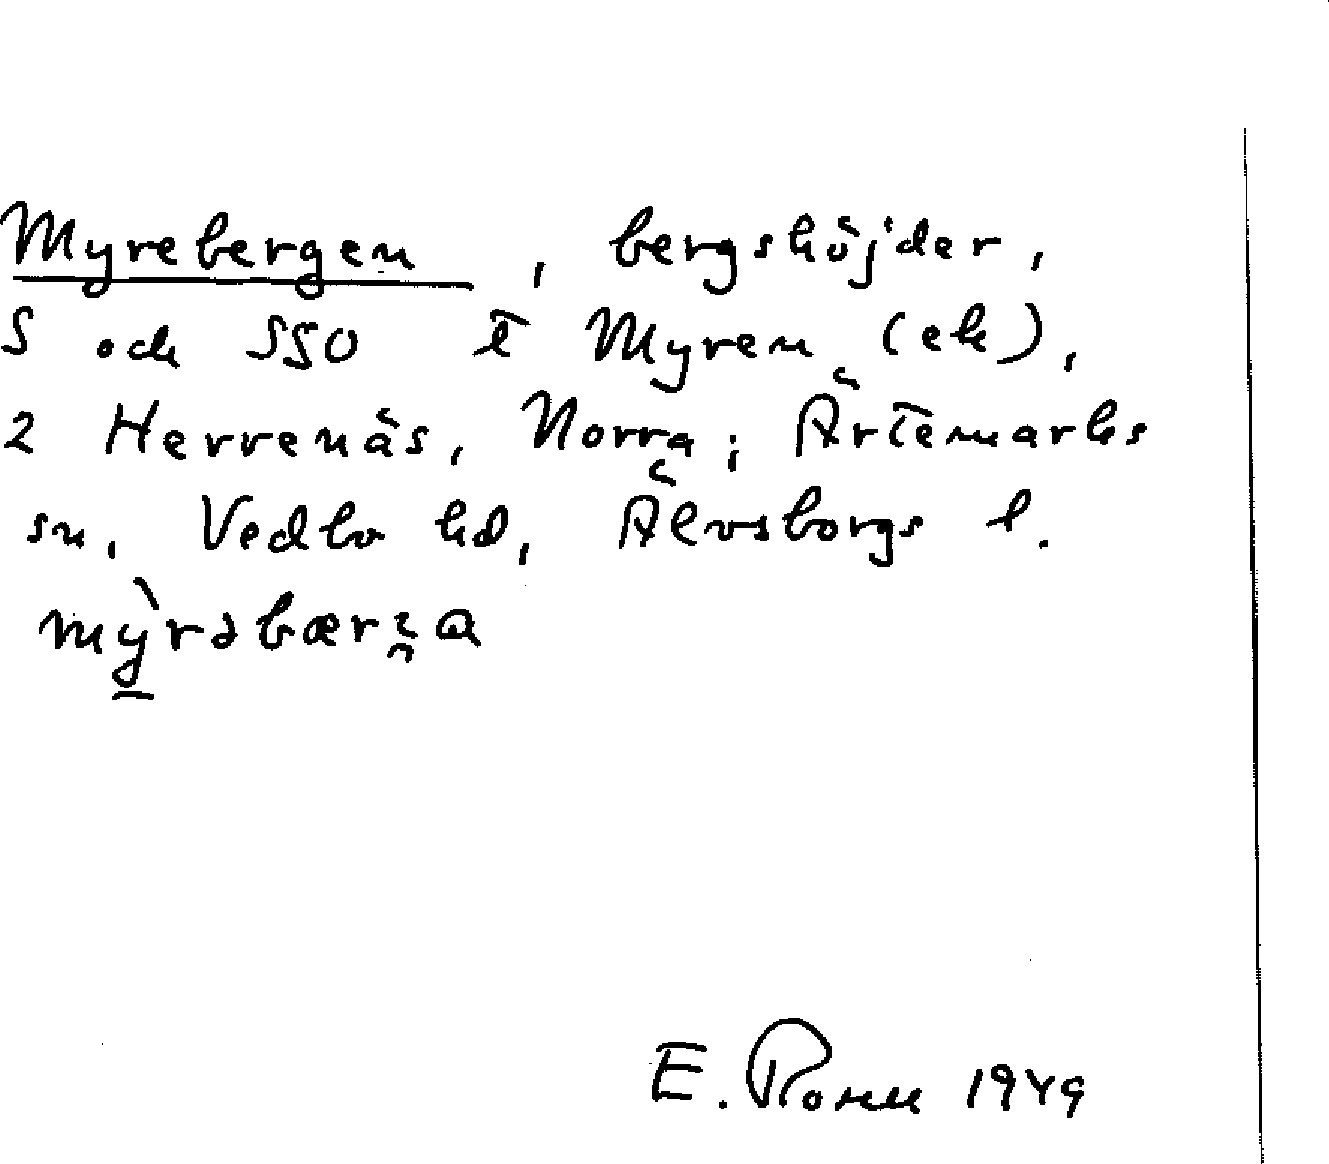 Myrebergen, bergshöjder,
S och SSO t Myren (ek),
2 Herrenäs, Norra; Ärtemarks
sn, Vedbo hd, Älvsborgs l.
mỳrəbærɀa
E. 1949